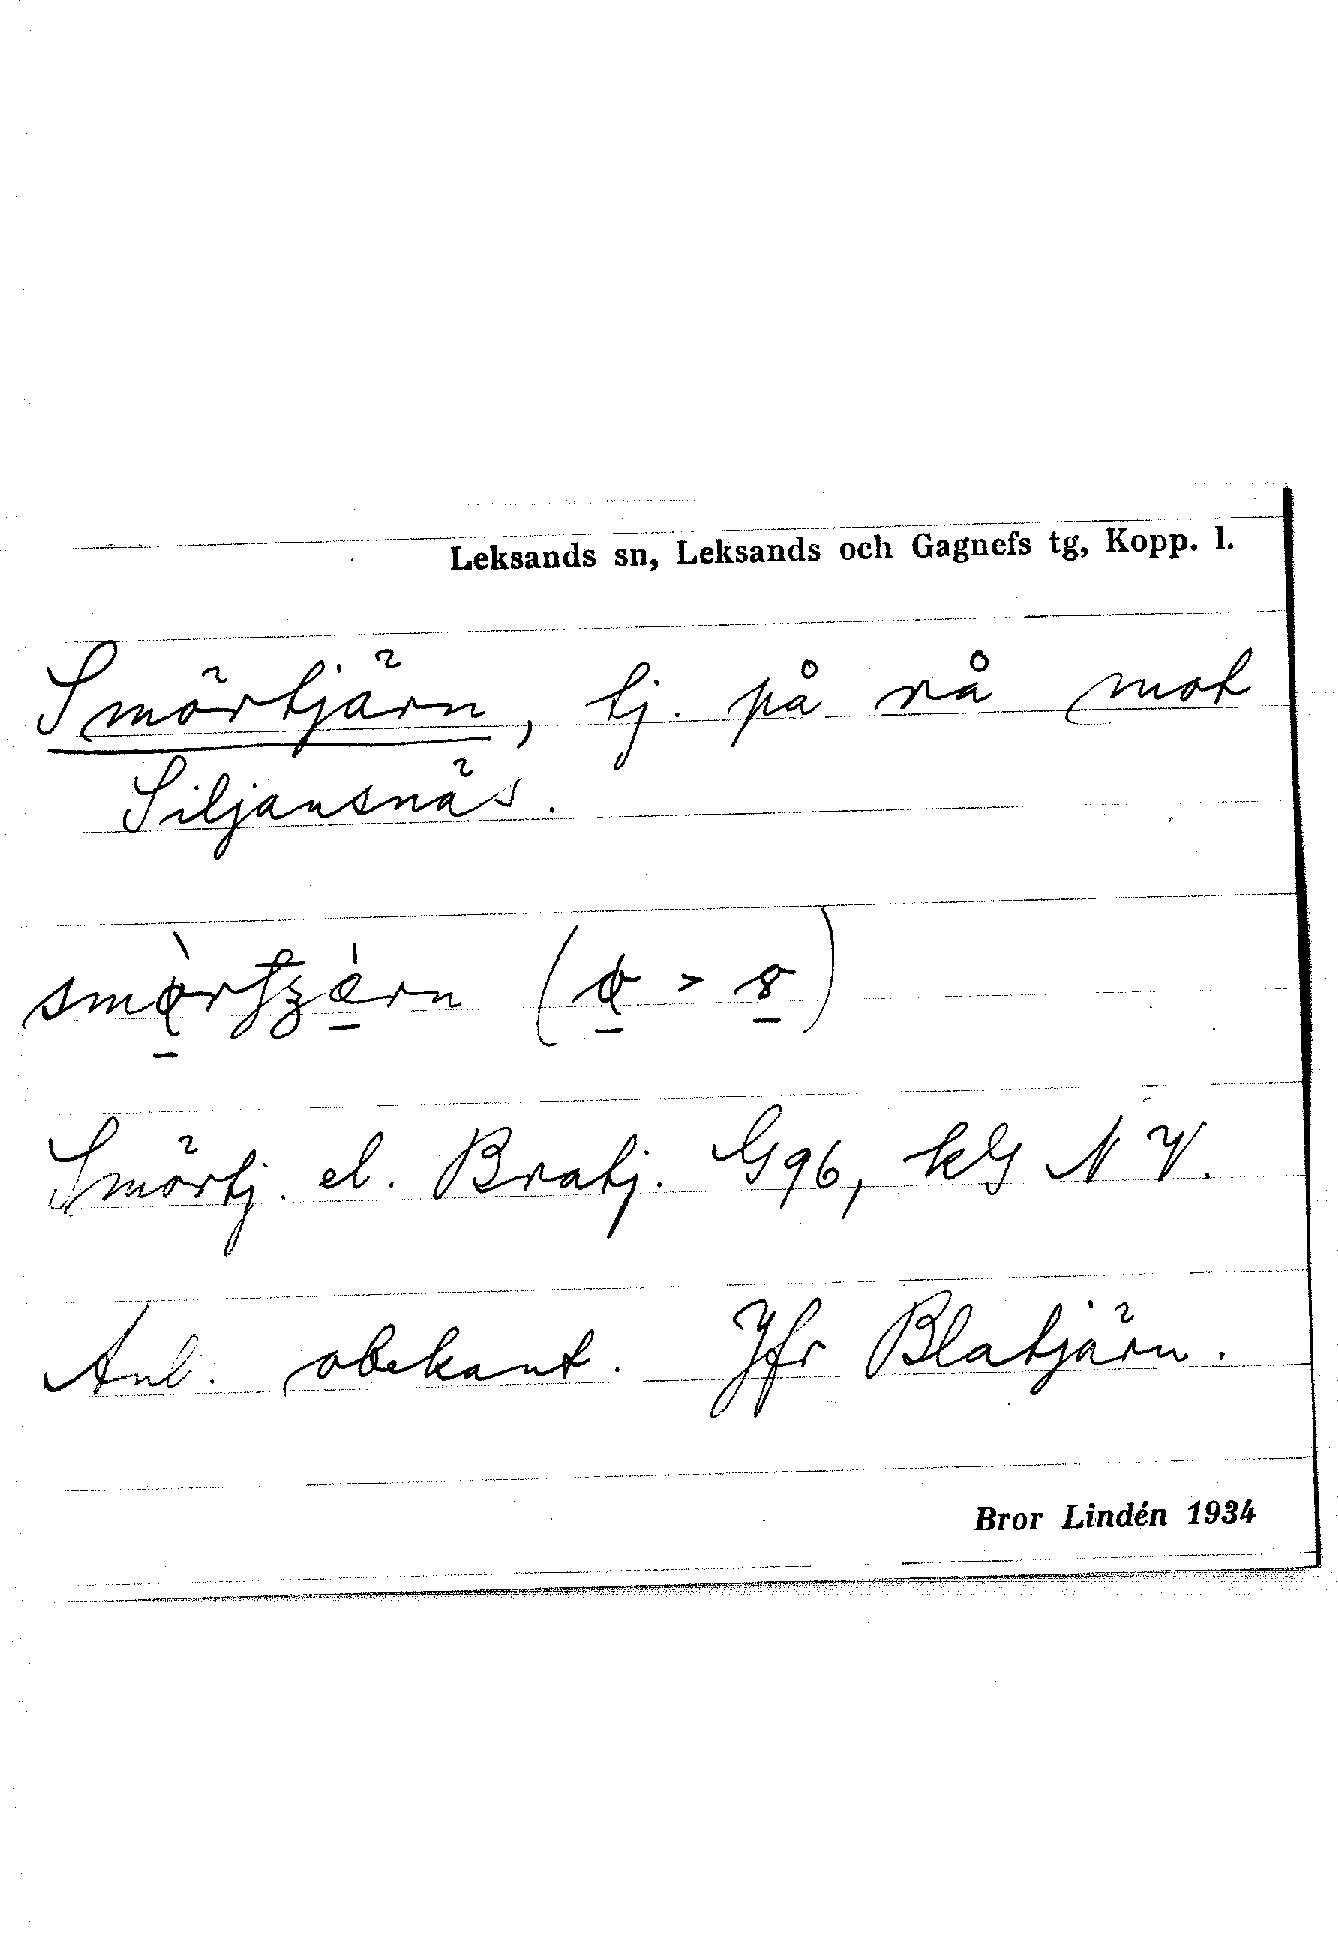 Leksands sn, Leksands och Gagnefs tg, Kopp. l.
Smörtjärn, tj. på rå mot
Siljansnäs.
Smörtj. el. Bratj. G96, kG NV.
Anl. obekant. Jfr Blatjärn.
Bror Lindén 1934